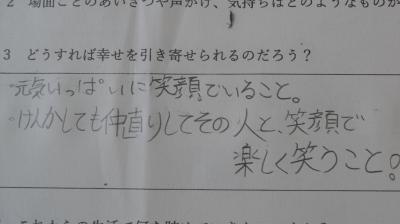 2 場面ごとのあいさつや声かけ、気持ちはどのようなものか
3 どうすれば幸せを引き寄せられるのだろう？
・元気いっぱいに笑顔でいること。
・けんかしても仲直りしてその人と、笑顔で
楽しく笑うこと。